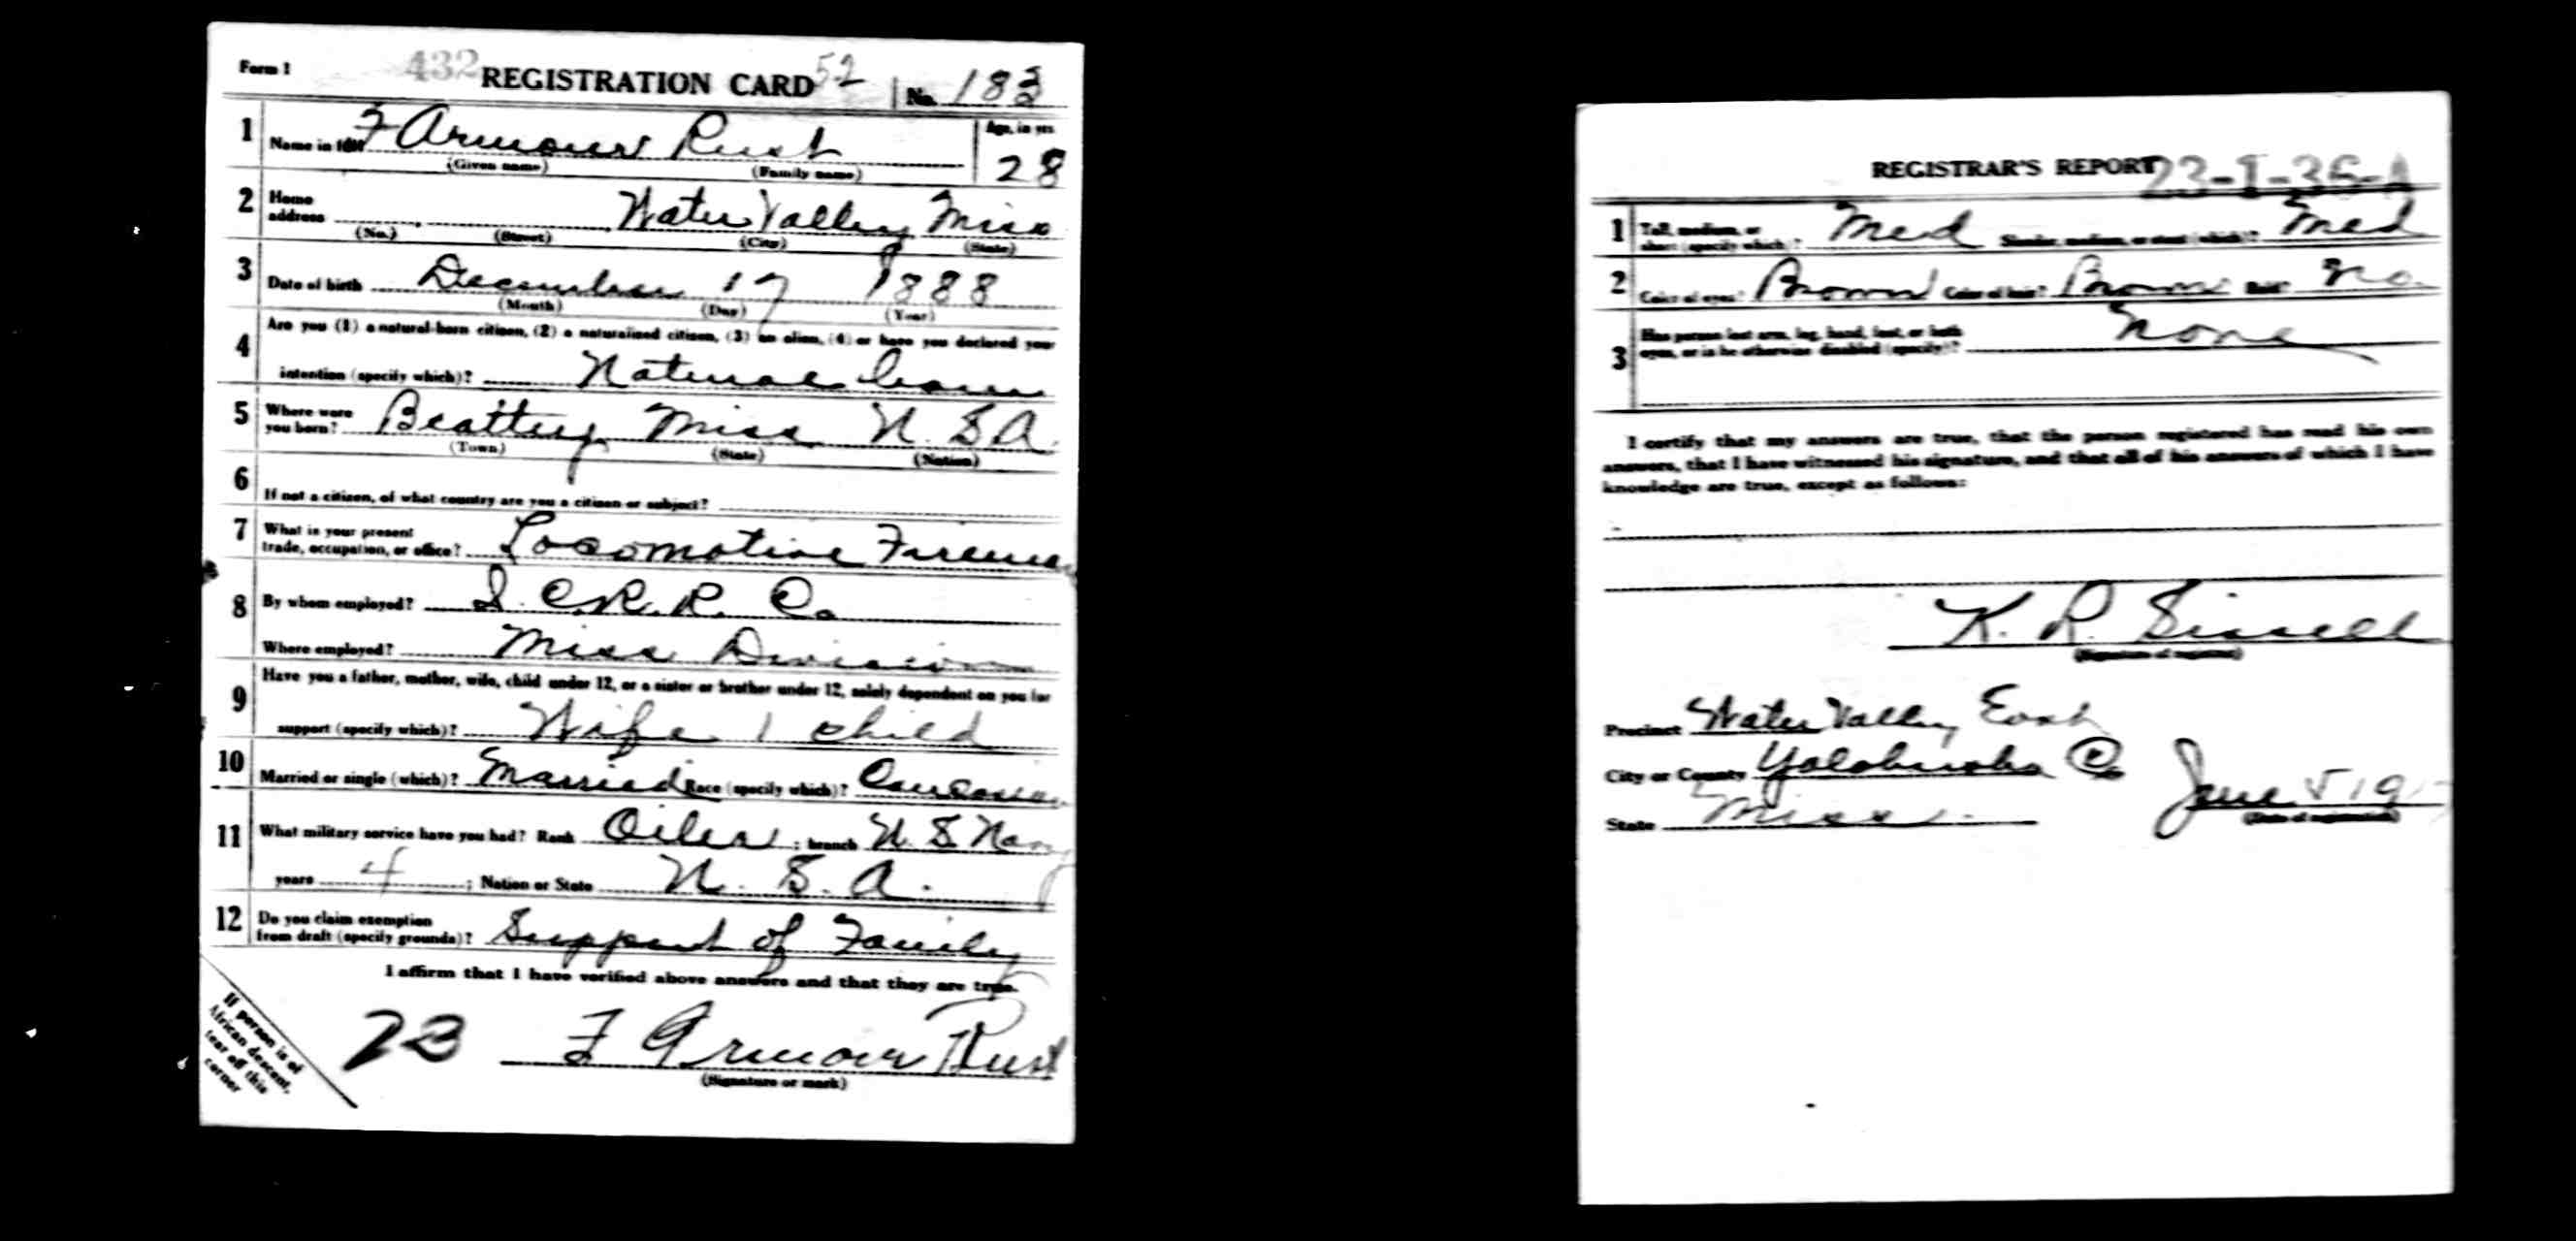 Form 1 432 REGISTRATION CARD 52 No. 183
1 Name in full F Armour Rust Age, in yrs 28
(Given name) (Family name)
2 Home address Water Valley Miss
(No.) (Street) (City) (State)
3 Date of birth December 17 1888
(Month) (Day) (Year)
4 Are you (1) a natural-born citizen, (2) a naturalized citizen, (3) an alien, (4) or have you declared your
intention (specify which)? Natural born
5 Where were you born? Beatty Miss U.S.A.
(Town) (State) (Nation)
6 If not a citizen, of what country are you a citizen or subject?
7 What is your present trade, occupation, or office? Locomotive Fireman
8 By whom employed? I.C.R.R. Co
Where employed? Miss Division
9 Have you a father, mother, wife, child under 12, or a sister or brother under 12, solely dependent on you for
support (specify which)? Wife 1 child
10 Married or single (which)? Married Race (specify which)? Caucasian
11 What military service have you had? Rank Oiler ; branch U.S Navy
years 4 ; Nation or State U.S.A.
12 Do you claim exemption from draft (specify grounds)? Support of Family
I affirm that I have verified above answers and that they are true.
23 F Armour Rust
(Signature or mark)
If person is of
African descent,
tear off this
corner
REGISTRAR'S REPORT 23-1-36-A
1 Tall, medium, or short (specify which)? Med Slender, medium, or stout (which)? Med
2 Color of eyes? Brown Color of hair? Brown Bald? No.
3 Has person lost arm, leg, hand, foot, or both
eyes, or is he otherwise disabled (specify)? None
I certify that my answers are true, that the person registered has read his own
answers, that I have witnessed his signature, and that all of his answers of which I have
knowledge are true, except as follows:
K. R. Sissell
(Signature of registrar)
Precinct Water Valley East
City or County Yalobusha Co
State Miss. June 5 191
(Date of registration)